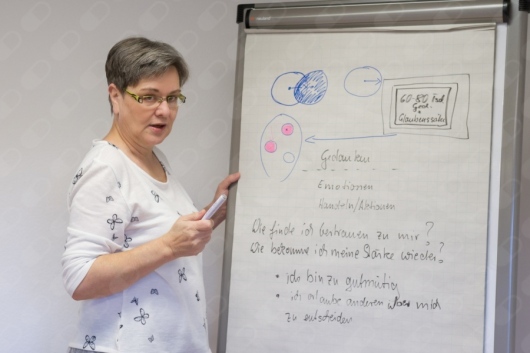 60-80 Tsd
Ged.
Glaubenssätze
Gedanken
Emotionen
Handeln/Aktionen
Wie finde ich Vertrauen zu mir?
Wie bekomme ich meine Stärke wieder?
• ich bin zu gutmütig
• ich erlaube anderen über mich
zu entscheiden